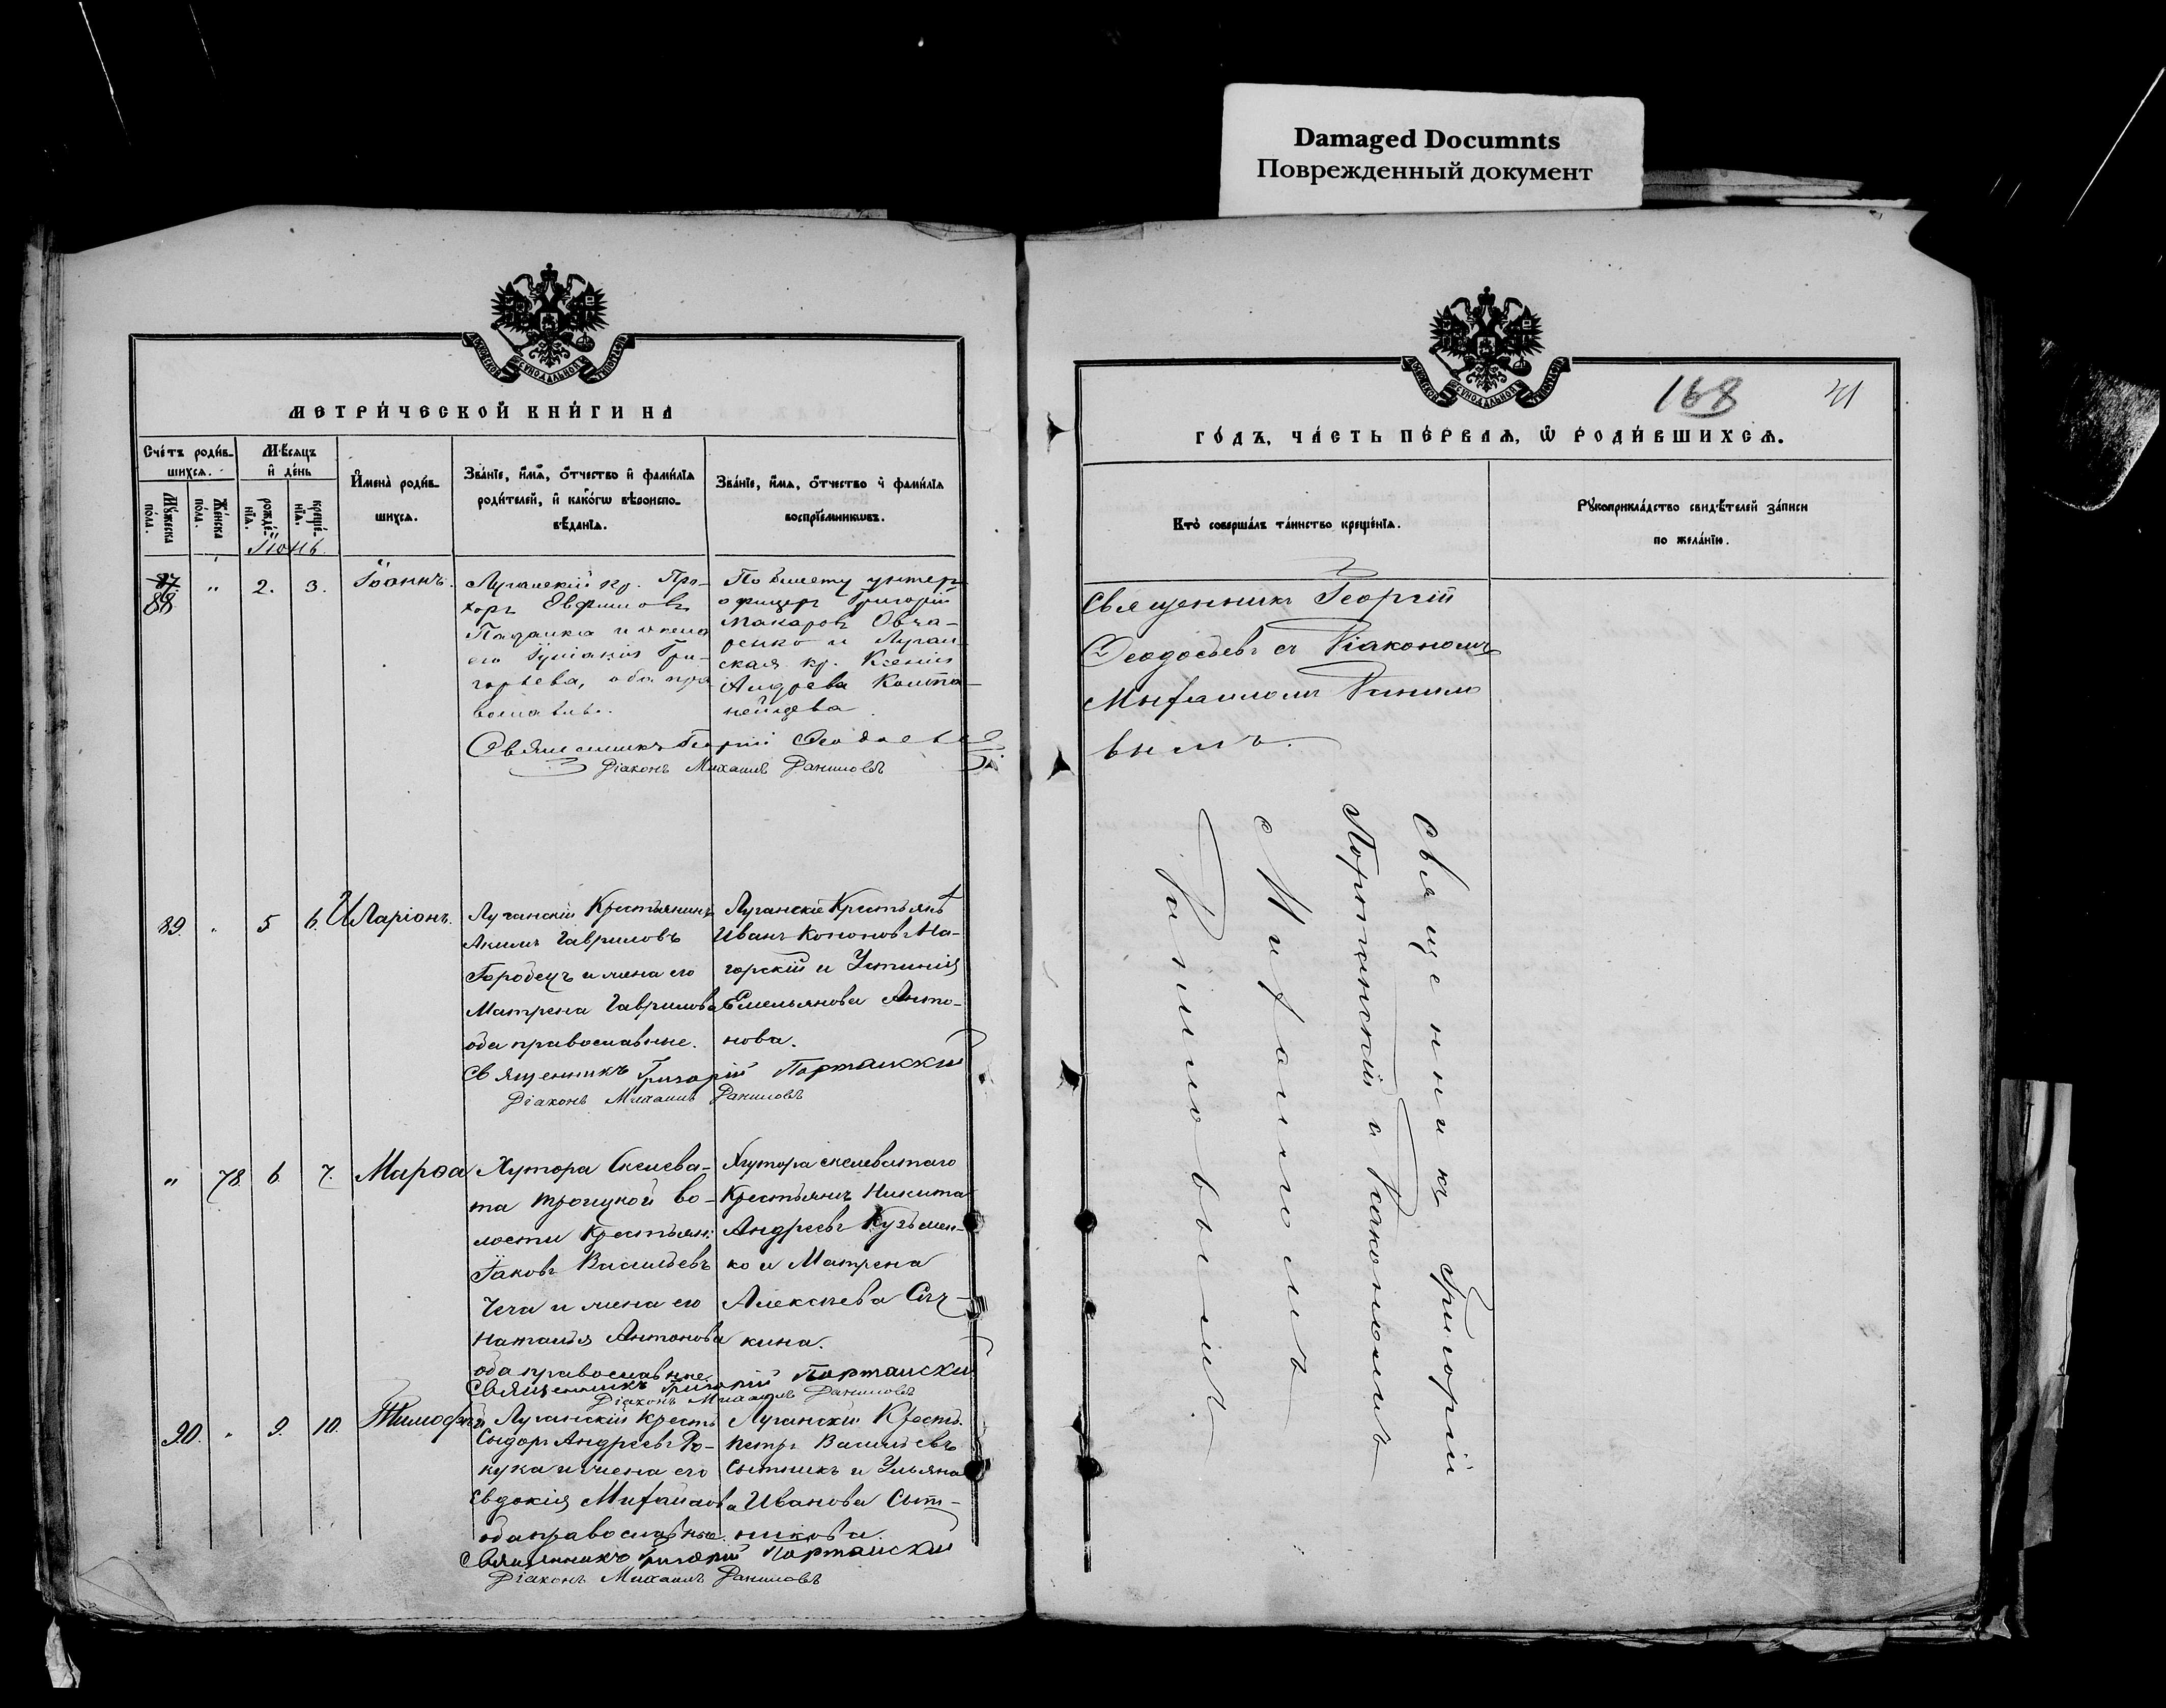 Damaged Documnts
Поврежденный документ
МЕТРИ́ЧЕСКОЙ КНИ́ГИ НА
Сче́тъ роди́в-
шихся.
Мѣ́сяцъ
и҆ де́нь
Мꙋ́жеска по́ла.
Же́нска по́ла.
рожде́нїѧ.
креще́нїѧ.
И҆мена̀ роди́в-
шихсѧ.
Зва́нїе, и҆́мѧ, ѻ҆́тчество и҆ фами́лїѧ
роди́телей, и҆ како́гѡ вѣроиспо-
вѣ́данїѧ.
Зва́нїе, и҆́мѧ, ѻ҆́тчество и҆ фами́лїѧ
воспрїе́мникѡвъ.
Іюнь.
88
"
2.
3.
Іоаннъ.
Луганскій кр. Про-
хоръ Евфимовъ
и жена
его Іуліанія Гри-
горьева, оба пра-
вославн.
По билету унтеръ
офицеръ Григорій
Макаровъ Овча-
ренко и Луган-
ская кр. Ксенія
Андреева Компа-
нейцева
Священникъ Георгій Ѳеодосьевъ
Діаконъ Михаилъ Даниловъ
89.
"
5
6.
Иларіонъ.
Луганскій Крестьянинъ
Акимъ Гавриловъ
Городецъ и жена его
Матрена Гаврилова
оба православные.
Луганскіе Крестьяне
Иванъ Кононовъ На-
горскій и Устинія
Емельянова Анто-
нова.
Священникъ Григорій Портанскій
Діаконъ Михаилъ Даниловъ
"
78.
6.
7.
Марѳа
Хутора Скелева-
та Троицкой во-
лости Крестьян:
Іаковъ Васильевъ
Чега и жена его
Наталья Антонова
оба православные
Хутора скелеватаго
Крестьянъ Никита
Андреевъ Кузьмен-
ко и Матрена
Алексѣева Сыч-
кина.
Священникъ Григорій Портанскій
Діаконъ Михаилъ Даниловъ
90.
"
9.
10.
Тимофей
Луганскій Кресть
Сидоръ Андреевъ Ро-
кука и жена его
Евдокія Михайлова
оба православные
Луганскіи Кресть.
Петръ Васильевъ
Сытникъ и Ульяна
Иванова Сыт-
никова.
Священникъ Григорій Портанскій
Діаконъ Михаилъ Даниловъ
168
41
ГО́ДЪ, ЧА́СТЬ ПЕ́РВАѦ, Ѽ РОДИ́ВШИХСѦ.
Кто̀ соверша́лъ та́инство креще́нїѧ.
Рꙋкоприкла́дство свидѣ́телей за́писи
по жела́нїю.
Священникъ Георгій
Ѳеодосьевъ съ Діакономъ
Михаиломъ Данило
вымъ.
Священникъ Григорій
Портанскій съ Діакономъ
Михаиломъ
Даниловымъ.